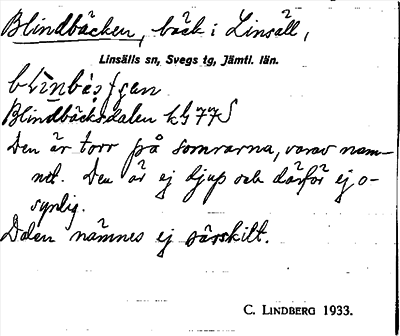 Blindbäcken, bäck i Linsäll,
Linsälls sn, Svegs tg, Jämtl. län.
Blindbäcksdalen LG 77 S
Den är torr på somrarna, varav nam-
net. Den är ej djup och därför ej o-
synlig.
Dalen nämnes ej särskilt.
C. LINDBERG 1933.